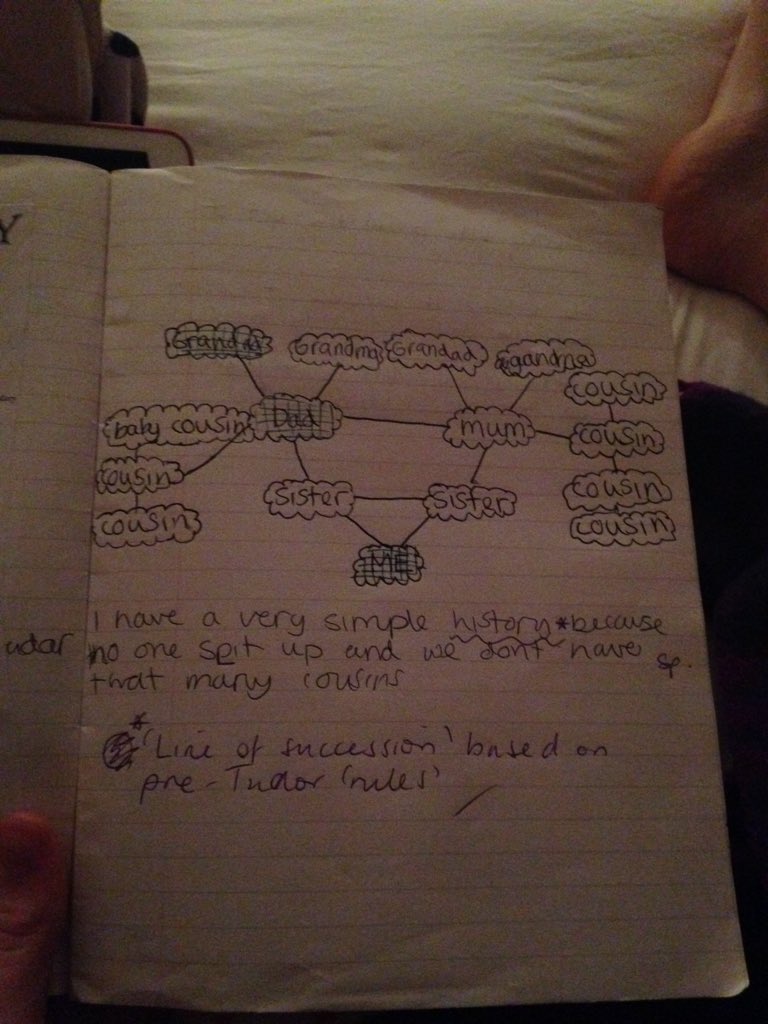 Y
Grandad Grandma Grandad gandma
cousin
baby cousin Dad mum cousin
cousin Sister Sister cousin
cousin cousin
ME
I have a very simple history * because
udar no one spit up and we dont have sp.
that many cousins
* 'Line of succession' based on
pre-Tudor 'rules'